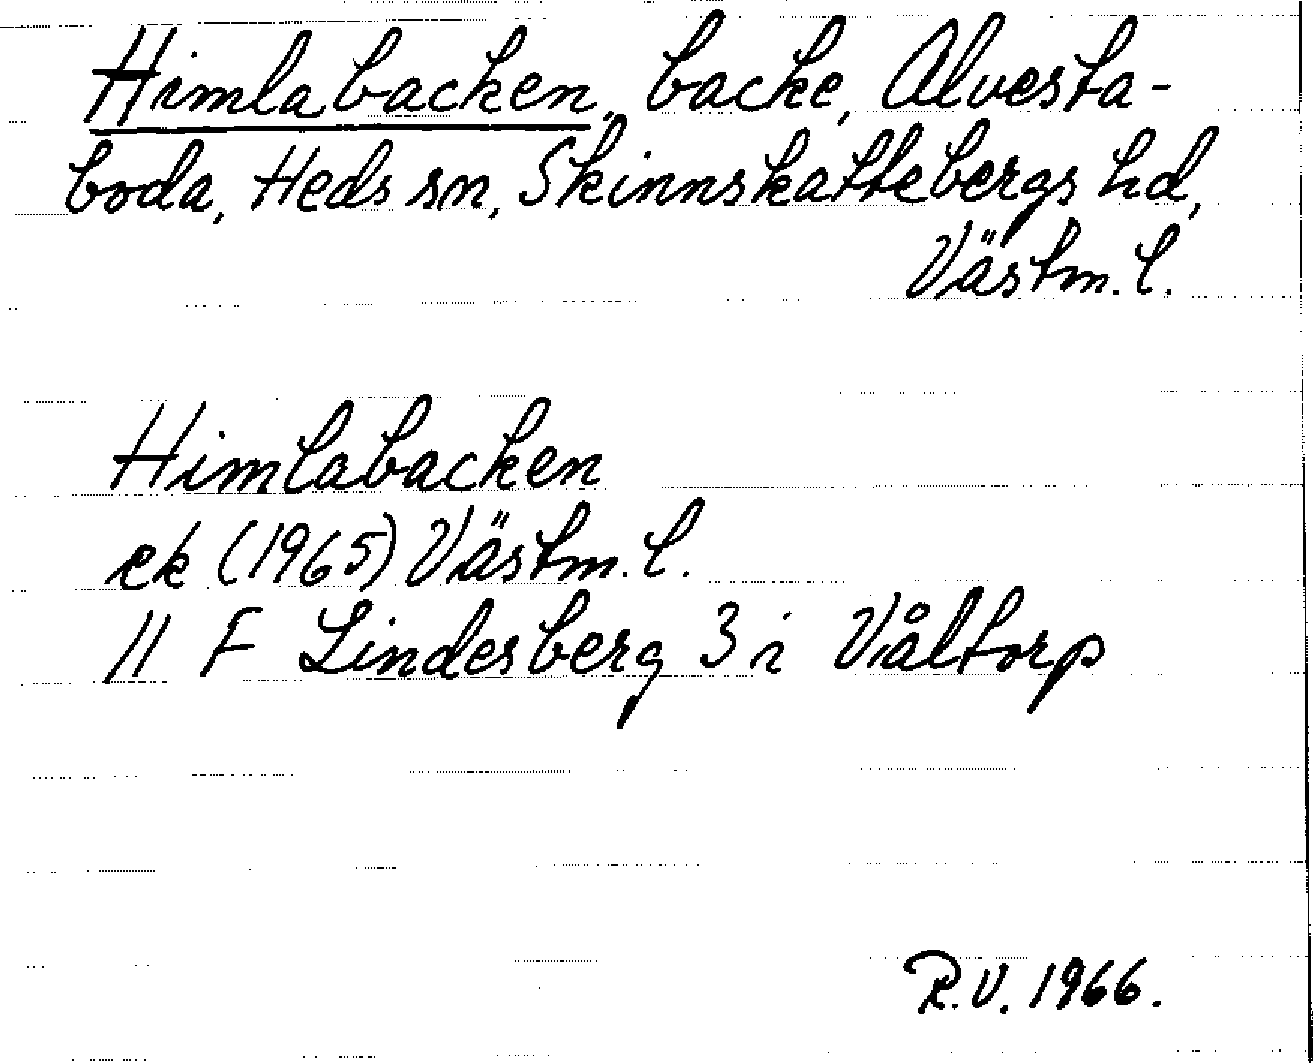 Himlabacken, backe, Alvesta-
boda, Heds sn, Skinnskattebergs hd,
Västm. l.
Himlabacken
ek (1965) Västm. l.
11 F Lindesberg 3 i Våltorp
R.V. 1966.